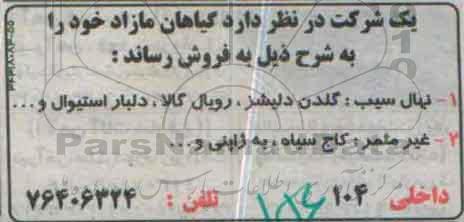 یک شرکت در نظر دارد گیاهان مازاد خود را
به شرح ذیل به فروش رساند :
۱- نهال سیب : گلدن دلیشز ، رویال گالا ، دلبار استیوال و...
۲- غیر مثمر : کاج سیاه ، به ژاپنی و...
تلفن : ۷۶۴۰۶۳۲۴ داخلی ۱۰۴